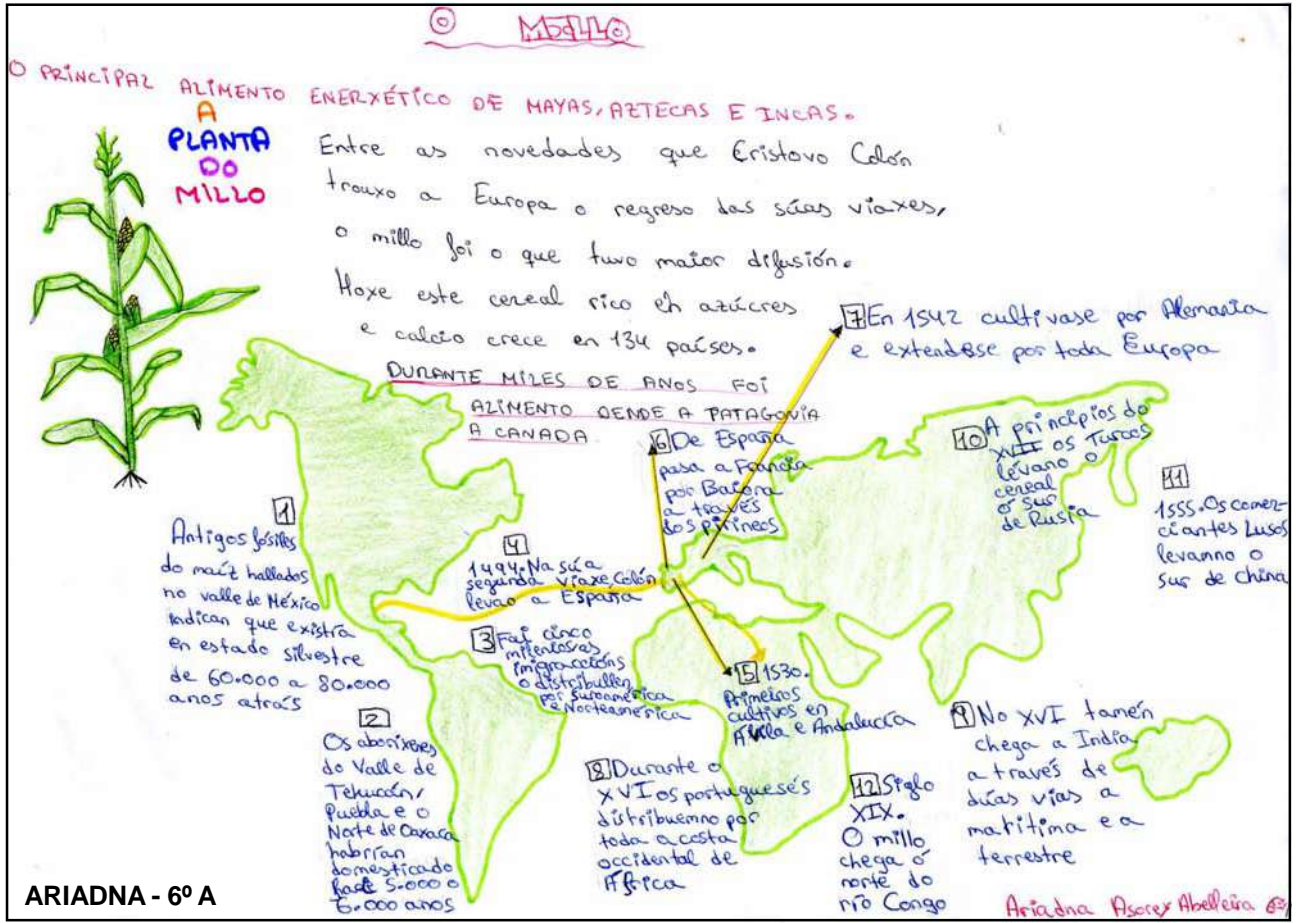 O MILLO
O PRINCIPAL ALIMENTO ENERXÉTICO DE MAYAS, AZTECAS E INCAS.
A
PLANTA
DO
MILLO
Entre as novedades que Cristovo Colón
trouxo a Europa o regreso das súas viaxes,
o millo foi o que tuvo maior difusión.
Hoxe este cereal rico en azúcres
e calcio crece en 134 países.
DURANTE MILES DE ANOS FOI
ALIMENTO DENDE A PATAGONIA
A CANADA.
1
Antigos fósiles
do maíz hallados
no valle de México
indican que existía
en estado silvestre
de 60.000 a 80.000
anos atrás
2
Os aboríxenes
do Valle de
Tehucán,
Puebla e o
Norte de Oaxaca
habrían
domesticado
hace 5.000 o
6.000 anos
3 Fai cinco
milenios as
imigraccións
o distribullen
por Suroamérica
e Norteamérica
4
1494. Na súa
segunda viaxe, Colón
levao a España
5 1530.
Primeiros
cultivos en
Ávila e Andalucía
6 De España
pasa a Francia
por Baiona
a través
dos pirineos
7 En 1542 cultivase por Alemania
e extendese por toda Europa
8 Durante o
XVI os portugueses
distribuemno por
toda a costa
occidental de
África
9 No XVI tamén
chega a India
a través de
dúas vias a
marítima e a
terrestre
10 A principios do
XVII os Turcos
lévano o
cereal
ó sur
de Rusia
11
1555. Os comer-
ciantes Lusos
levanno o
sur de china
12 Siglo
XIX.
O millo
chega ó
norte do
río Congo
ARIADNA - 6º A
Ariadna Asorey Abelleira